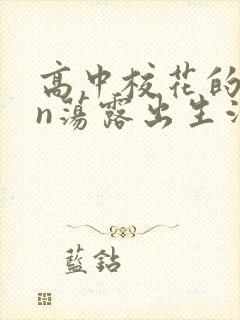 高中校花的
n荡露出生
藍鈷